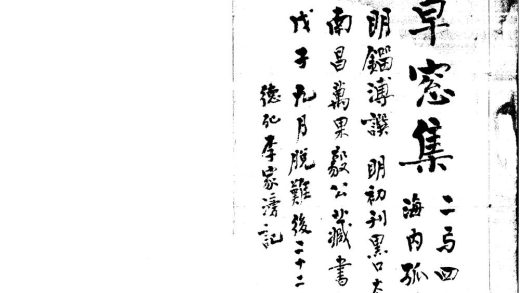 草窓集
二与四
海内孤
明鎦溥譔 明初刊黑口大
南昌萬果毅公藏書
戊子九月脫難後二十二
德化李家滂記